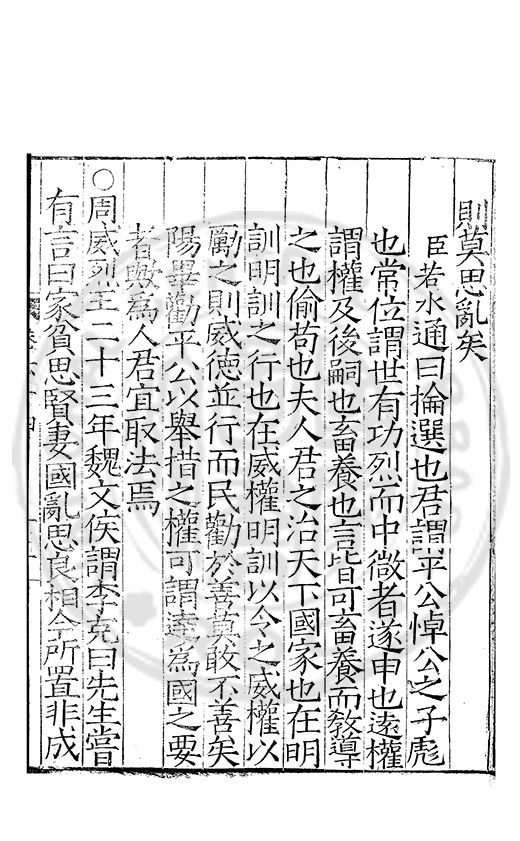 則莫思亂矣
臣若水通曰掄選也君謂平公悼公之子彪
也常位謂世有功烈而中微者遂申也遠權
謂權及後嗣也畜養也言皆可畜養而教導
之也偷苟也夫人君之治天下國家也在明
訓明訓之行也在威權明訓以令之威權以
勵之則威德並行而民勸於善莫敢不善矣
陽畢勸平公以舉措之權可謂達為國之要
者歟為人君宜取法焉
○周威烈王二十三年魏文侯謂李克曰先生嘗
有言曰家貧思賢妻國亂思良相今所置非成